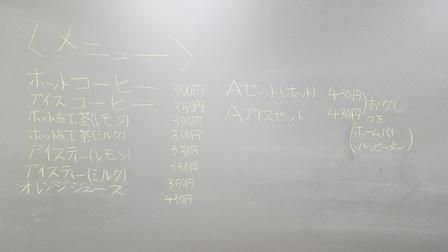 〈メニュー〉
ホットコーヒー 300円
アイスコーヒー 350円
ホット紅茶(レモン) 300円
ホット紅茶(ミルク) 300円
アイスティー(レモン) 350円
アイスティー(ミルク) 350円
オレンジジュース 350円
430円
Aセット(ホット) 430円
Aアイスセット 480円
おかし
つき
(ホームパイ